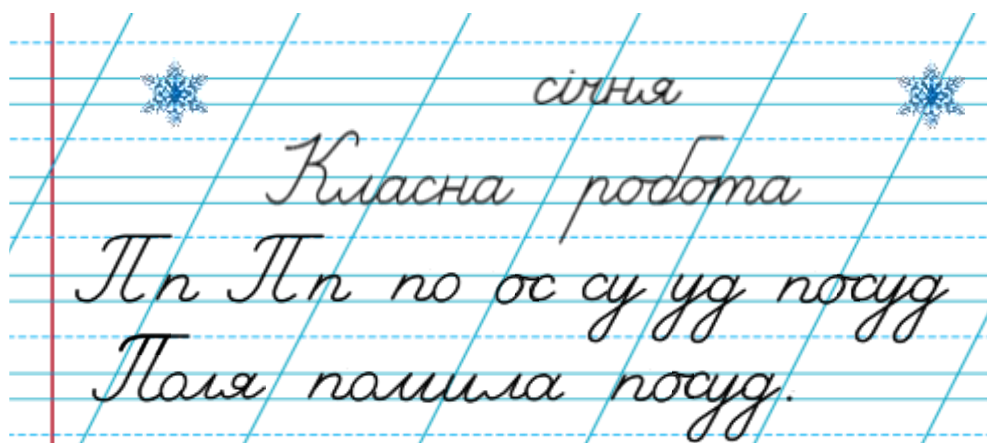 січня
Класна робота
Пп Пп по ос су уд посуд
Поля помила посуд.